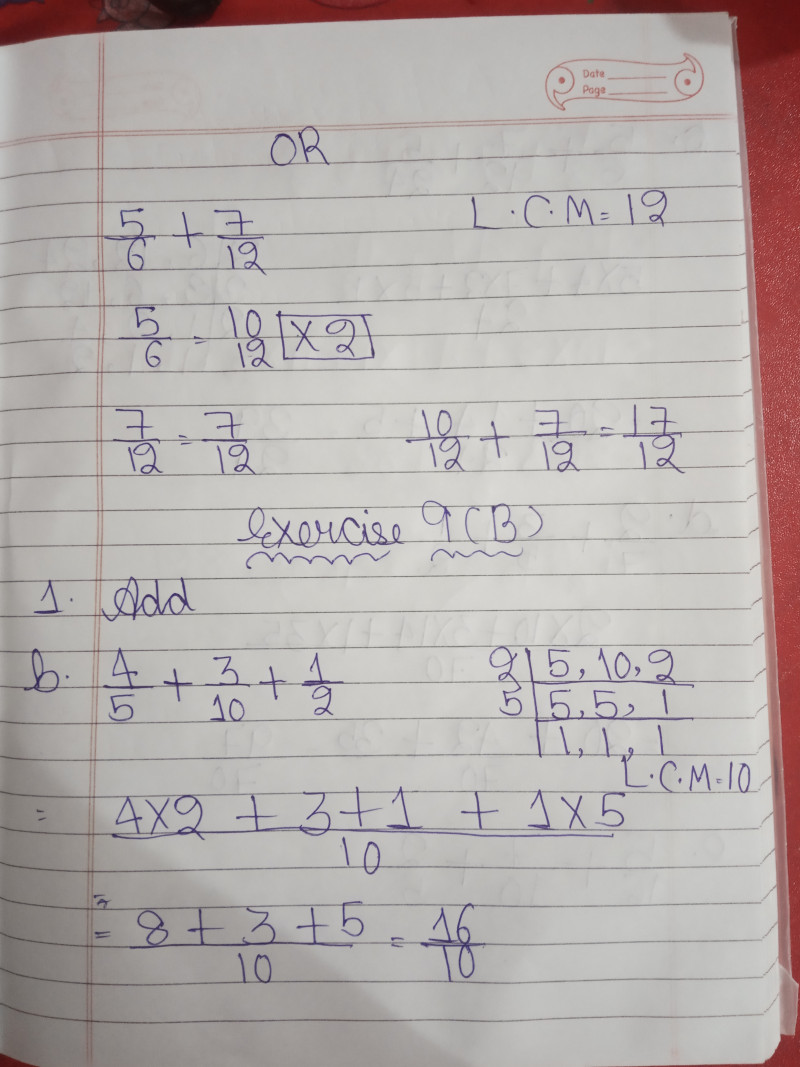 Date
Page
OR
5/6 + 7/12    L.C.M = 12
5/6 = 10/12 × 2
7/12 = 7/12    10/12 + 7/12 = 17/12
Exercise 9(B)
1. Add
b. 4/5 + 3/10 + 1/2    2 | 5, 10, 2
5 | 5, 5, 1
| 1, 1, 1
L.C.M = 10
= 4×2 + 3+1 + 1×5 / 10
= 8 + 3 + 5 / 10 = 16/10